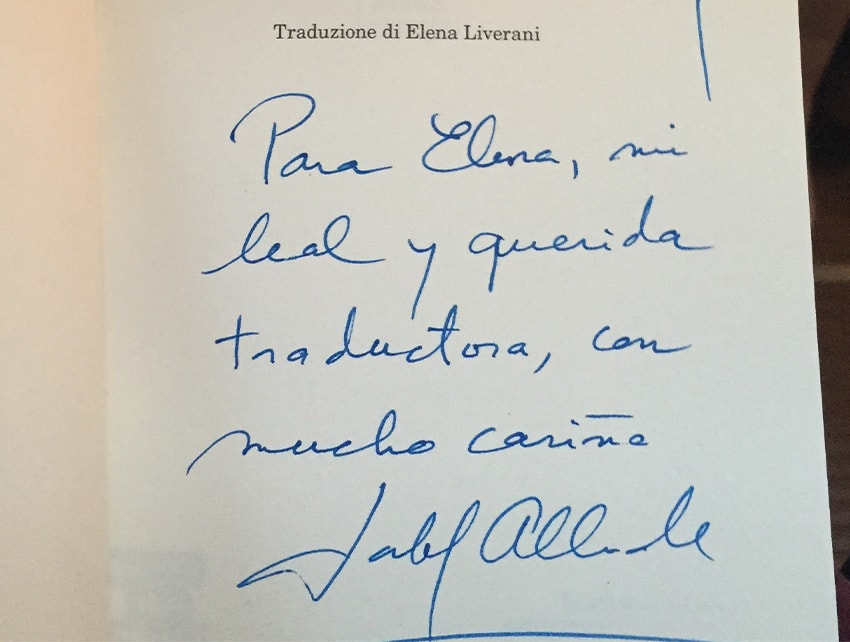 Traduzione di Elena Liverani
Para Elena, mi
leal y querida
traductora, con
mucho cariño
Isabel Allende